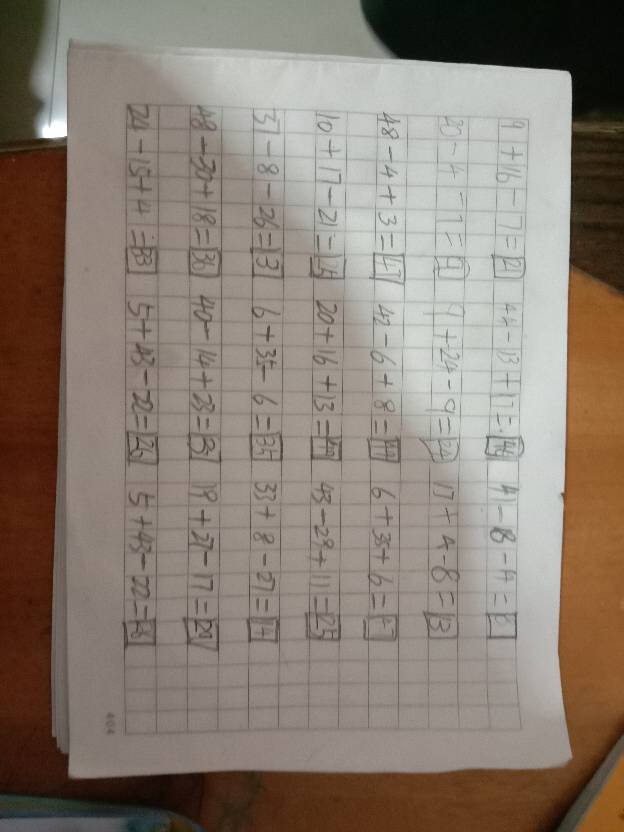 9+16-7=21 44-13+17=48 41-8-17=8
20-4-7=9 9+24-9=24 17+4-8=13
48-4+3=47 42-6+8=44 6+35+6=47
10+17-21= 20+16+13=49 43-29+11=25
37-8-26=3 6+35-6=35 33+8-27=14
48-30+18=36 40-14+23= 19+27-17=29
24-15+4=33 5+43-22=26 5+43-22=26
404